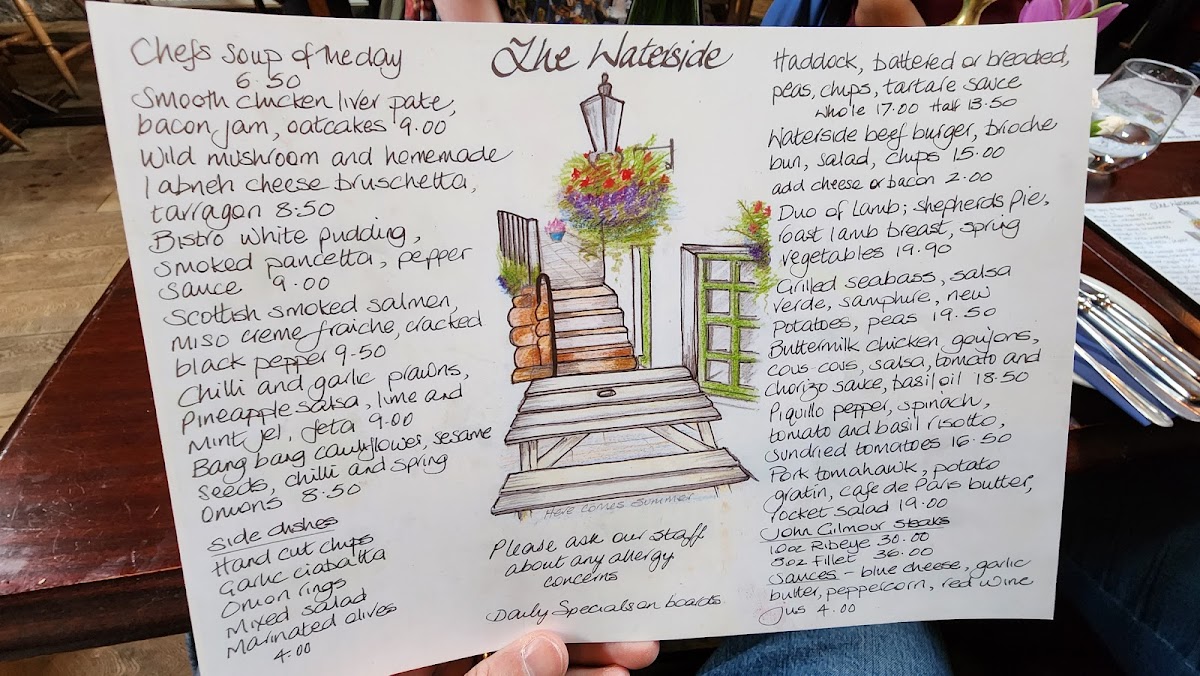 Chefs Soup of The day
6.50
Smooth chicken liver pate,
bacon jam, oatcakes 9.00
Wild mushroom and homemade
labneh cheese bruschetta,
tarragon 8.50
Bistro white pudding,
smoked pancetta, pepper
sauce 9.00
Scottish smoked salmon,
miso creme fraiche, cracked
black pepper 9-50
Chilli and garlic prawns,
Pineapple salsa, lime and
mint jel, feta 9.00
Bang bang cauliflower, sesame
seeds, chilli and spring
onions 8.50
Side dishes
Hand cut chips
Garlic ciabatta
Onion rings
Mixed salad
Marinated olives
4.00
The Waterside
Here comes summer
Please ask our staff
about any allergy
concerns
Daily Specials on boards
Haddock, battered or breaded,
peas, chips, tartare sauce
whole 17.00 Half 13.50
Waterside beef burger, brioche
bun, salad, chips 15.00
add cheese or bacon 2.00
Duo of Lamb; shepherds pie,
roast lamb breast, spring
vegetables 19.90
Grilled seabass, salsa
verde, samphire, new
potatoes, peas 19.50
Buttermilk chicken goujons,
cous-cous, salsa, tomato and
chorizo sauce, basil oil 18.50
Piquillo pepper, spinach,
tomato and basil risotto,
sundried tomatoes 16.50
Pork tomahawk, potato
gratin, cafe de Paris butter,
rocket salad 19.00
John Gilmour steaks
10oz Ribeye 30.00
8oz Fillet 36.00
Sauces - blue cheese, garlic
butter, peppercorn, red wine
jus 4.00